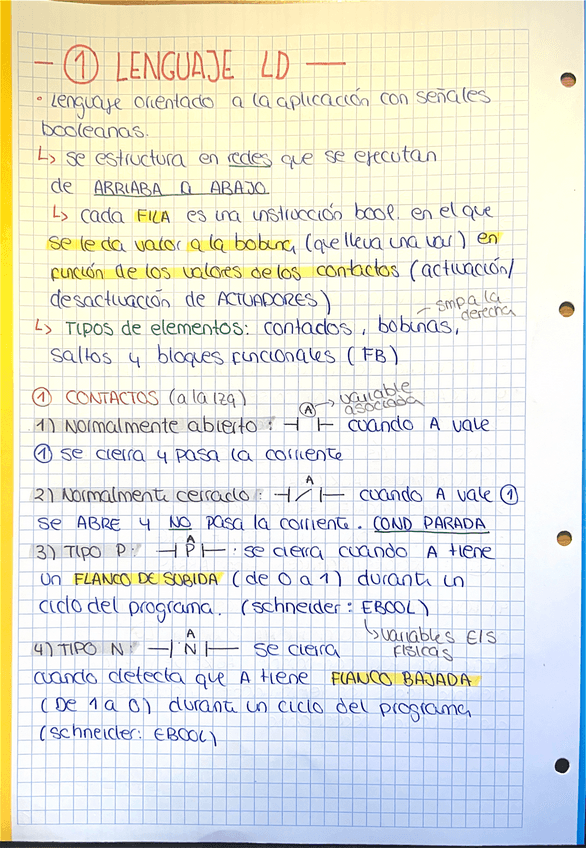 — ① LENGUAJE LD —
• Lenguaje orientado a la aplicación con señales
booleanas.
↳ se estructura en redes que se ejecutan
de ARRIABA A ABAJO
↳ cada FILA es una instrucción bool. en el que
se le da valor a la bobina (que lleva una var) en
función de los valores de los contactos (activación/
desactivación de ACTUADORES)
↳ TIPOS de elementos: contactos, bobinas,
– smp a la
derecha
saltos y bloques funcionales (FB)
① CONTACTOS (a la izq)
1) Normalmente abierto: ⊣ Ⓐ ⊢ cuando A vale
→ variable
asociada
① se cierra y pasa la corriente
2) Normalmente cerrado: ⊣/⊢ A cuando A vale ①
se ABRE y NO pasa la corriente. COND PARADA
3) TIPO P: ⊣P⊢ A : se cierra cuando A tiene
un FLANCO DE SUBIDA (de 0 a 1) durante un
ciclo del programa. (schneider: EBOOL)
↳ variables E/S
FÍSICAS
4) TIPO N: ⊣N⊢ A se cierra
cuando detecta que A tiene FLANCO BAJADA
(De 1 a 0) durante un ciclo del programa
(schneider: EBOOL)